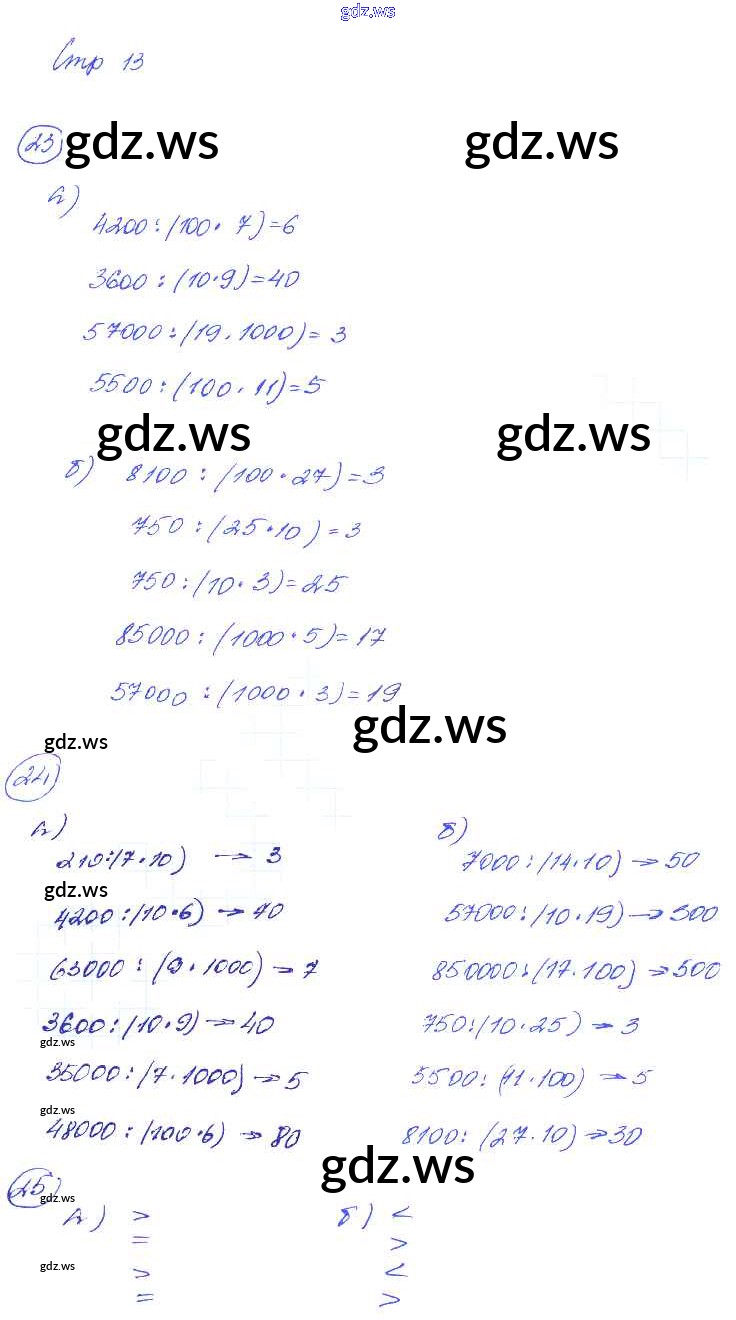 gdz.ws
Стр 13
23 gdz.ws gdz.ws
а)
4200:(100·7)=6
3600:(10·9)=40
57000:(19·1000)=3
5500:(100·11)=5
gdz.ws gdz.ws
б) 8100:(100·27)=3
750:(25·10)=3
750:(10·3)=25
85000:(1000·5)=17
57000:(1000·3)=19
gdz.ws
gdz.ws
24
а)
210:(7·10) → 3
gdz.ws
4200:(10·6) → 70
63000:(9·1000) → 7
3600:(10·9) → 40
gdz.ws
35000:(7·1000) → 5
gdz.ws
48000:(100·6) → 80
б)
7000:(14·10) → 50
57000:(10·19) → 300
850000:(17·100) → 500
750:(10·25) → 3
5500:(11·100) → 5
8100:(27·10) → 30
gdz.ws
25 gdz.ws
а) >
=
gdz.ws
>
=
б) <
>
<
>